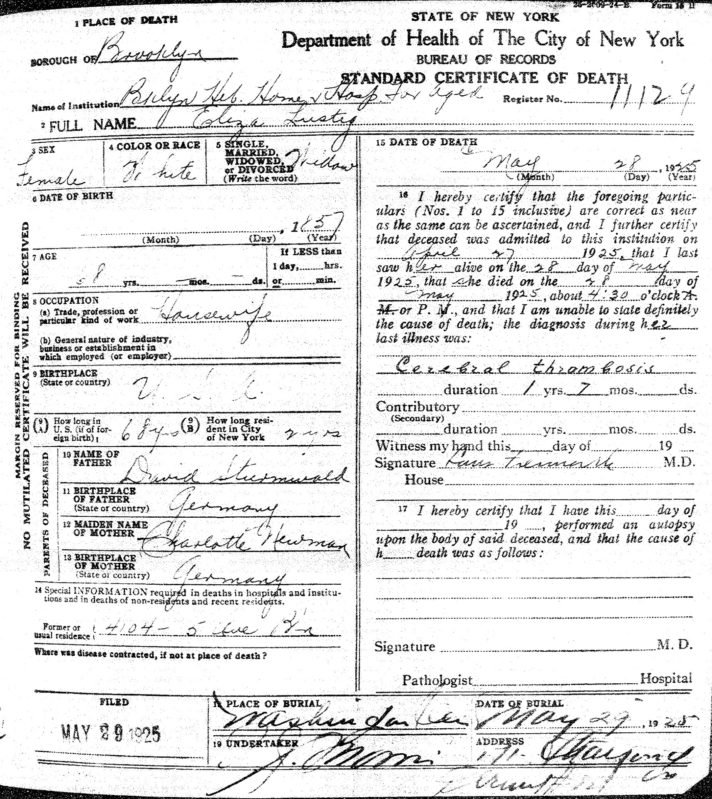 26-2609-24-B. Form 16 H
1 PLACE OF DEATH
STATE OF NEW YORK
BOROUGH OF Brooklyn
Department of Health of The City of New York
BUREAU OF RECORDS
STANDARD CERTIFICATE OF DEATH
Name of Institution Bklyn Heb. Home & Hosp for Aged
Register No. 11129
2 FULL NAME Eliza Lustig
3 SEX Female
4 COLOR OR RACE White
5 SINGLE, MARRIED, WIDOWED, or DIVORCED (Write the word) Widow
6 DATE OF BIRTH
, 1857
(Month) (Day) (Year)
7 AGE
68 yrs. — mos. — ds.
If LESS than 1 day, hrs. or min.
8 OCCUPATION
(a) Trade, profession or particular kind of work Housewife
(b) General nature of industry, business or establishment in which employed (or employer)
9 BIRTHPLACE
(State or country) U. S. A.
(9 A) How long in U. S. (if of foreign birth) 68 yrs
(9 B) How long resident in City of New York 2 yrs
PARENTS OF DECEASED
10 NAME OF FATHER David Sturmwald
11 BIRTHPLACE OF FATHER (State or country) Germany
12 MAIDEN NAME OF MOTHER Charlotte Newman
13 BIRTHPLACE OF MOTHER (State or country) Germany
14 Special INFORMATION required in deaths in hospitals and institu-
tions and in deaths of non-residents and recent residents.
Former or usual residence 4104 - 5 Ave Bn
Where was disease contracted, if not at place of death?
FILED
MAY 29 1925
MARGIN RESERVED FOR BINDING
NO MUTILATED CERTIFICATE WILL BE RECEIVED
15 DATE OF DEATH
May 28, 1925
(Month) (Day) (Year)
16 I hereby certify that the foregoing partic-
ulars (Nos. 1 to 15 inclusive) are correct as near
as the same can be ascertained, and I further certify
that deceased was admitted to this institution on
April 27 1925, that I last
saw her alive on the 28 day of May
1925, that she died on the 28 day of
May 1925, about 4:30 o'clock A.
M. or P. M., and that I am unable to state definitely
the cause of death; the diagnosis during her
last illness was:
Cerebral thrombosis
duration 1 yrs. 7 mos. ds.
Contributory
(Secondary)
duration yrs. mos. ds.
Witness my hand this day of 19
Signature M.D.
House
17 I hereby certify that I have this day of
19 , performed an autopsy
upon the body of said deceased, and that the cause of
h death was as follows:
Signature M. D.
Pathologist Hospital
PLACE OF BURIAL Washington Cem
DATE OF BURIAL May 29, 1925
19 UNDERTAKER
ADDRESS